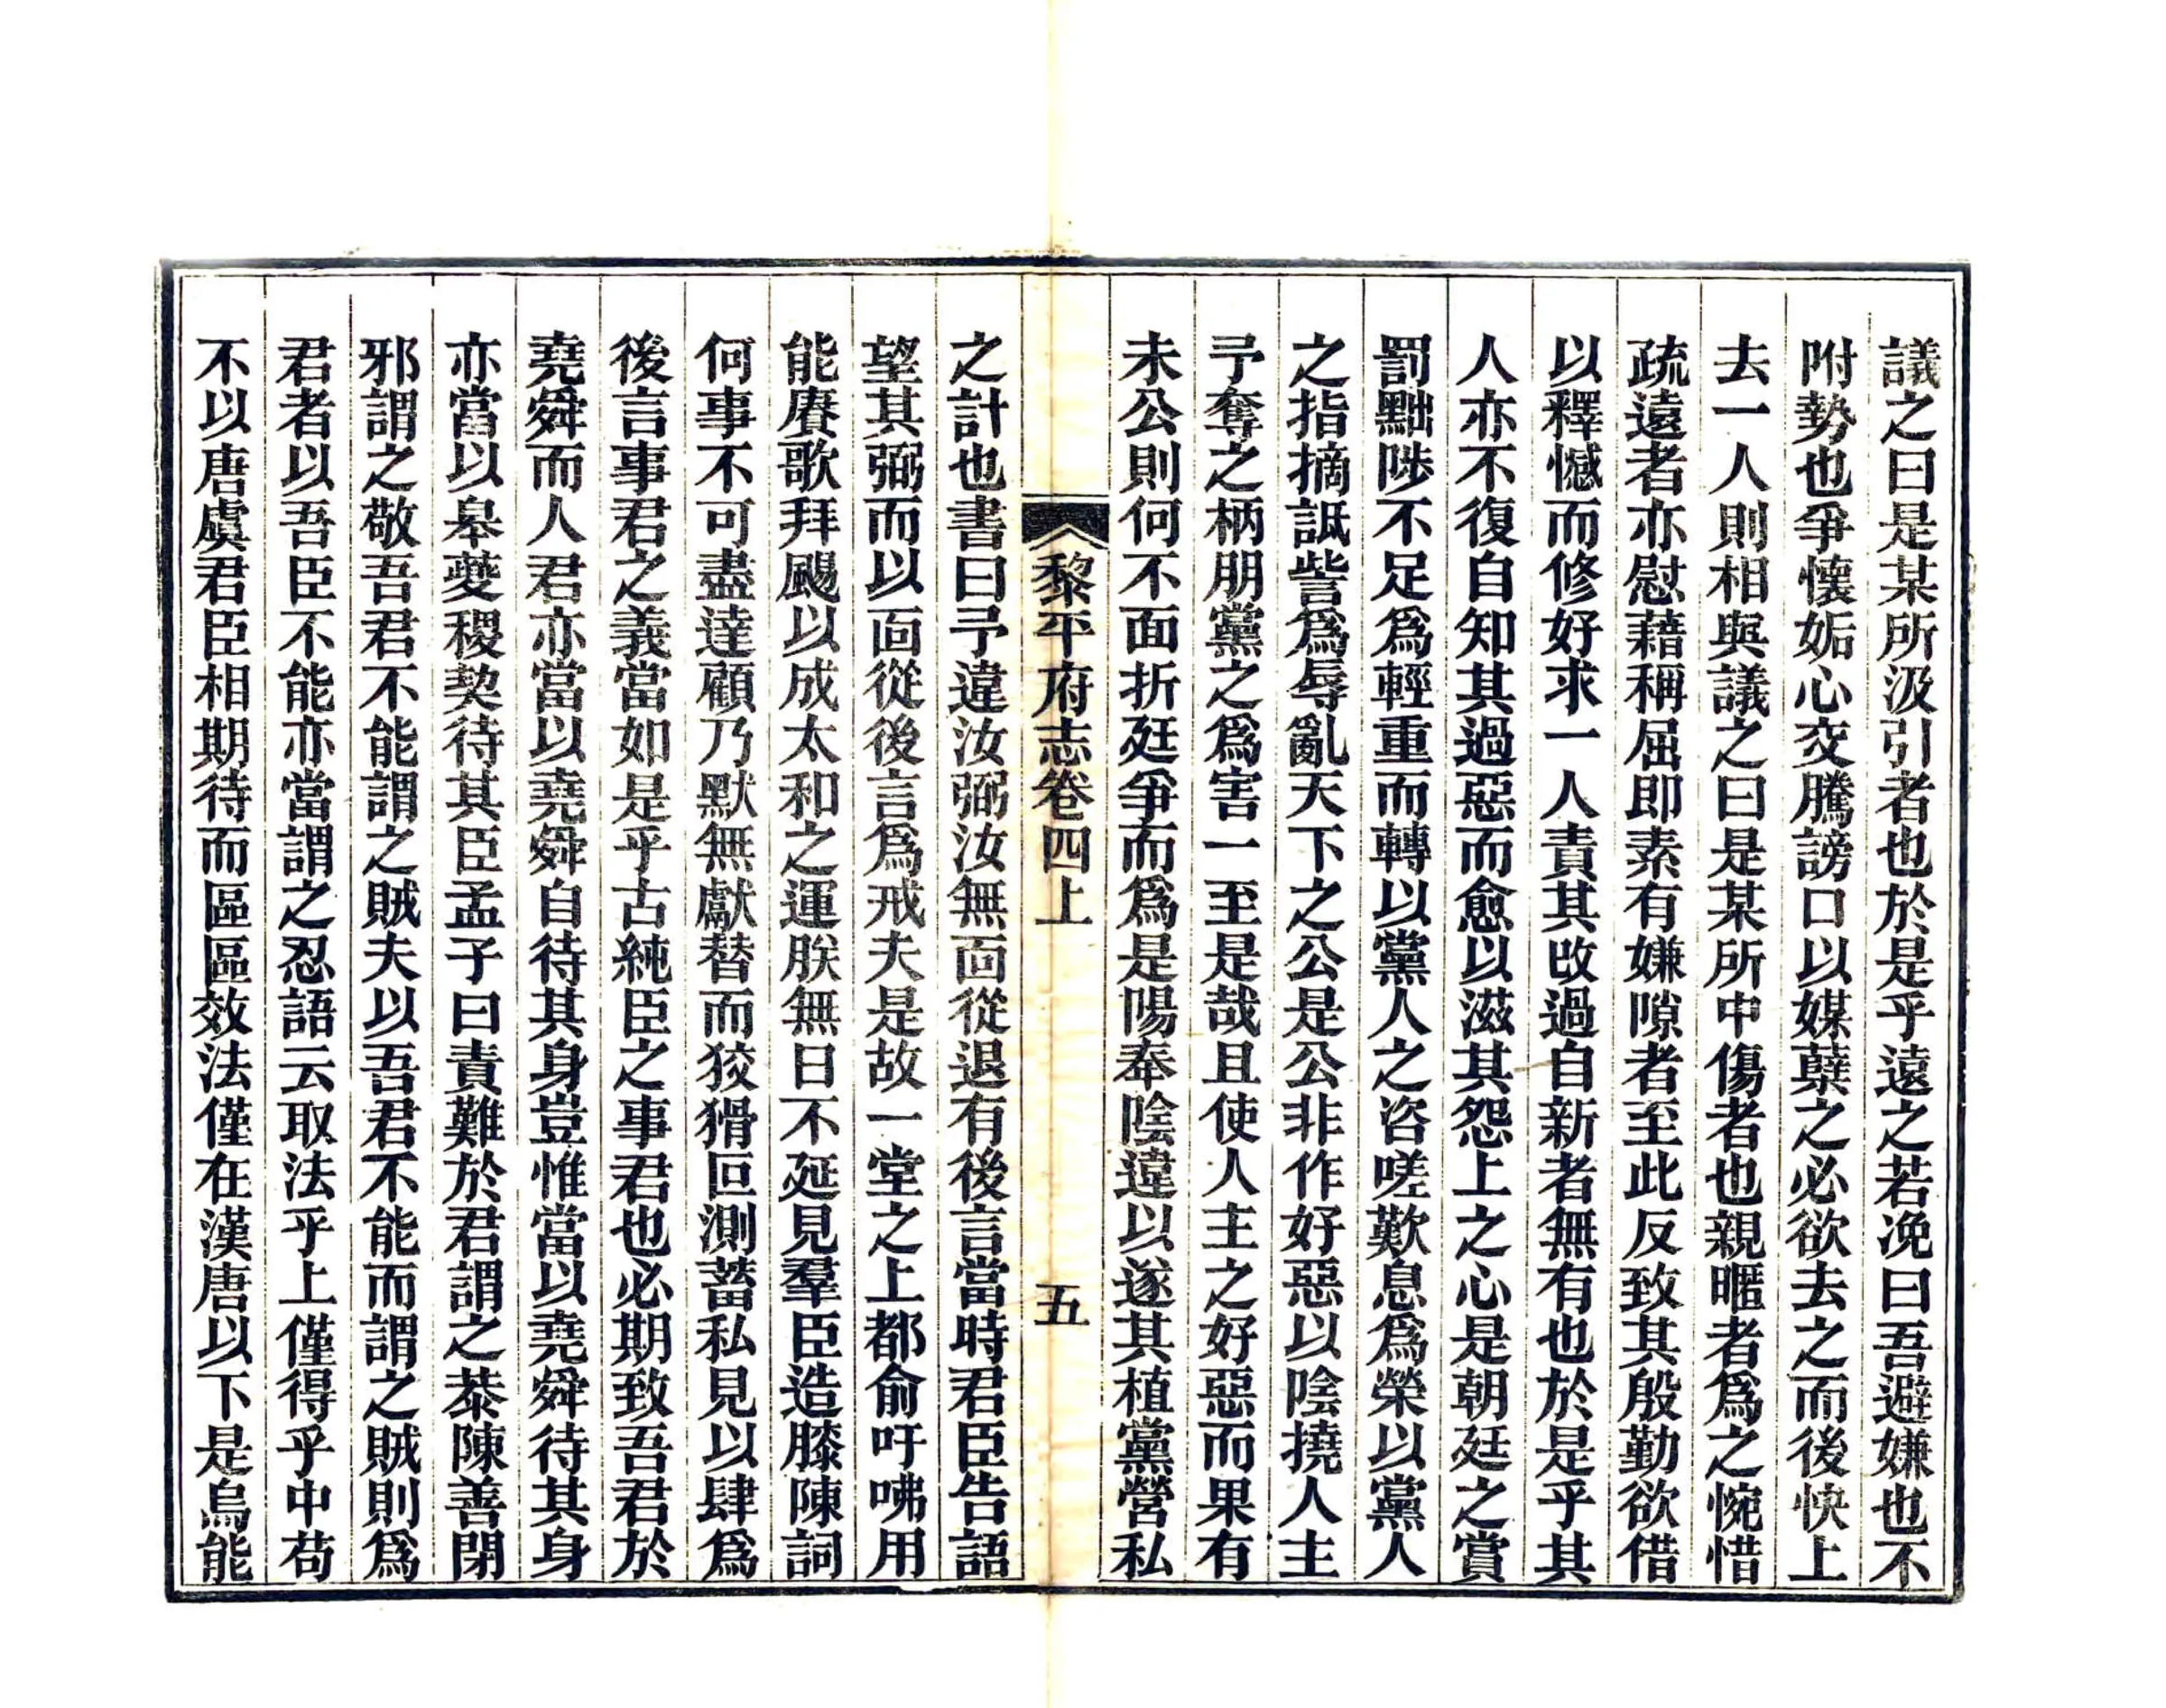 議之曰是某所汲引者也於是乎遠之若凂曰吾避嫌也不
附勢也爭懷妬心交騰謗口以媒蘖之必欲去之而後快上
去一人則相與議之曰是某所中傷者也親暱者爲之惋惜
疏遠者亦慰藉稱屈即素有嫌隙者至此反致其殷勤欲借
以釋憾而修好求一人責其改過自新者無有也於是乎其
人亦不復自知其過惡而愈以滋其怨上之心是朝廷之賞
罰黜陟不足爲輕重而轉以黨人之咨嗟歎息爲榮以黨人
之指摘詆訾爲辱亂天下之公是公非作好惡以陰撓人主
予奪之柄朋黨之爲害一至是哉且使人主之好惡而果有
未公則何不面折廷爭而爲是陽奉陰違以遂其植黨營私
黎平府志卷四上 五
之計也書曰予違汝弼汝無面從退有後言當時君臣告語
望其弼而以面從後言爲戒夫是故一堂之上都俞吁咈用
能賡歌拜颺以成太和之運朕無日不延見羣臣造膝陳詞
何事不可盡達顧乃默無獻替而狡猾叵測蓄私見以肆爲
後言事君之義當如是乎古純臣之事君也必期致吾君於
堯舜而人君亦當以堯舜自待其身豈惟當以堯舜待其身
亦當以皋夔稷契待其臣孟子曰責難於君謂之恭陳善閉
邪謂之敬吾君不能謂之賊夫以吾君不能而謂之賊則爲
君者以吾臣不能亦當謂之忍語云取法乎上僅得乎中苟
不以唐虞君臣相期待而區區效法僅在漢唐以下是烏能